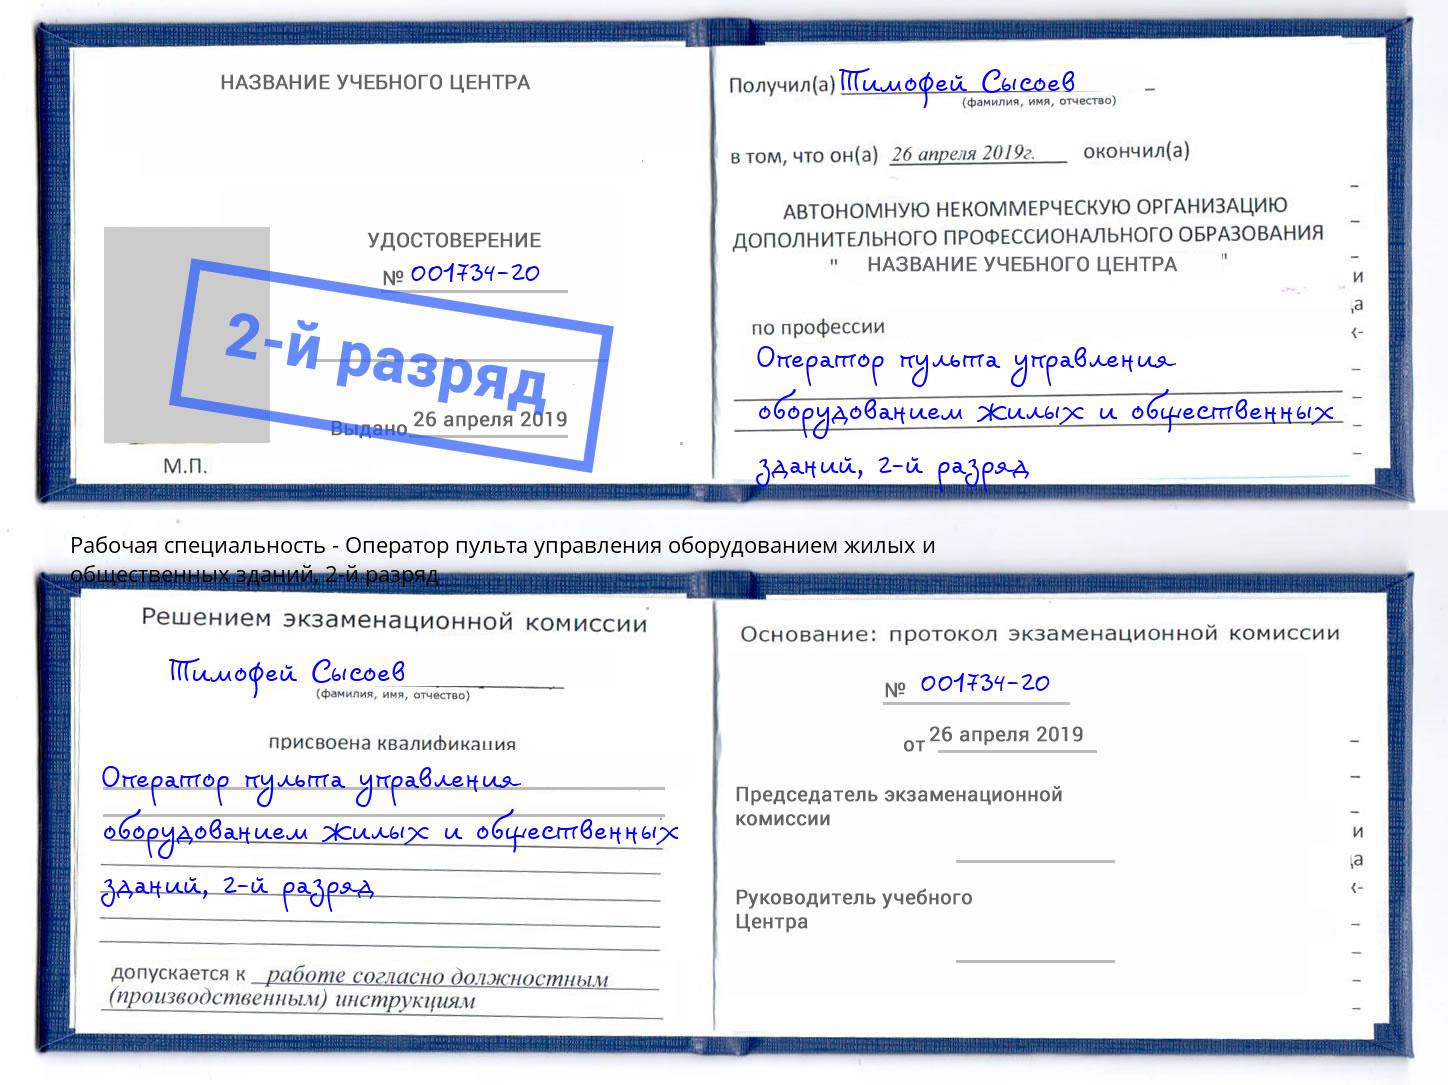 НАЗВАНИЕ УЧЕБНОГО ЦЕНТРА
УДОСТОВЕРЕНИЕ
№ 001734-20
2-й разряд
Выдано 26 апреля 2019
М.П.
Получил(а) Тимофей Сысоев
(фамилия, имя, отчество)
в том, что он(а) 26 апреля 2019г. окончил(а)
АВТОНОМНУЮ НЕКОММЕРЧЕСКУЮ ОРГАНИЗАЦИЮ
ДОПОЛНИТЕЛЬНОГО ПРОФЕССИОНАЛЬНОГО ОБРАЗОВАНИЯ
" НАЗВАНИЕ УЧЕБНОГО ЦЕНТРА "
по профессии
Оператор пульта управления
оборудованием жилых и общественных
зданий, 2-й разряд
Рабочая специальность - Оператор пульта управления оборудованием жилых и
общественных зданий, 2-й разряд
Решением экзаменационной комиссии
Тимофей Сысоев
(фамилия, имя, отчество)
присвоена квалификация
Оператор пульта управления
оборудованием жилых и общественных
зданий, 2-й разряд
допускается к работе согласно должностным
(производственным) инструкциям
Основание: протокол экзаменационной комиссии
№ 001734-20
от 26 апреля 2019
Председатель экзаменационной
комиссии
Руководитель учебного
Центра